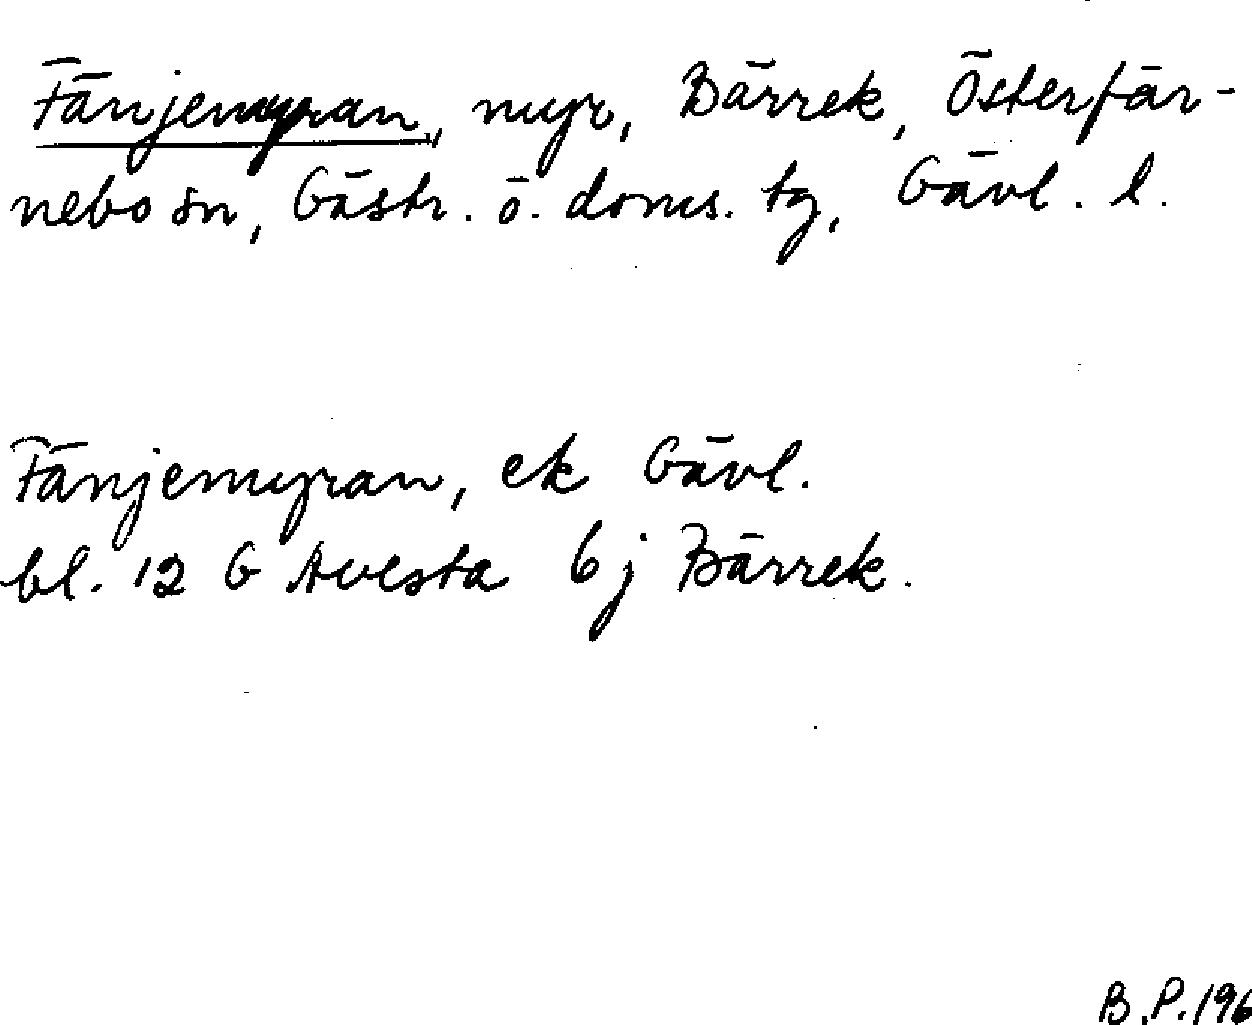 Fänjemyran, myr, Bärrek, Österfär-
nebo sn, Gästr. ö. doms. tg, Gävl. l.
Fänjemyran, ek Gävl.
bl. 12 G Avesta 6j Bärrek.
B.P.196